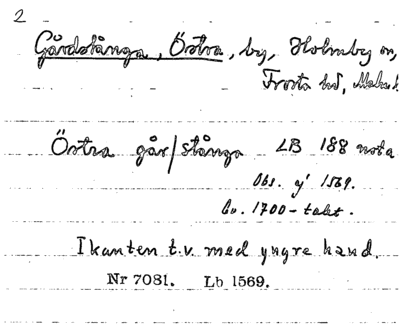 2
Gårdstånga, Östra, by, Holmby sn,
Frosta hd,
Östra går/stånga LB 188 nota
Obs. ej 1569.
av. 1700-talet.
I kanten t.v. med yngre hand.
Nr 7081. Lb 1569.